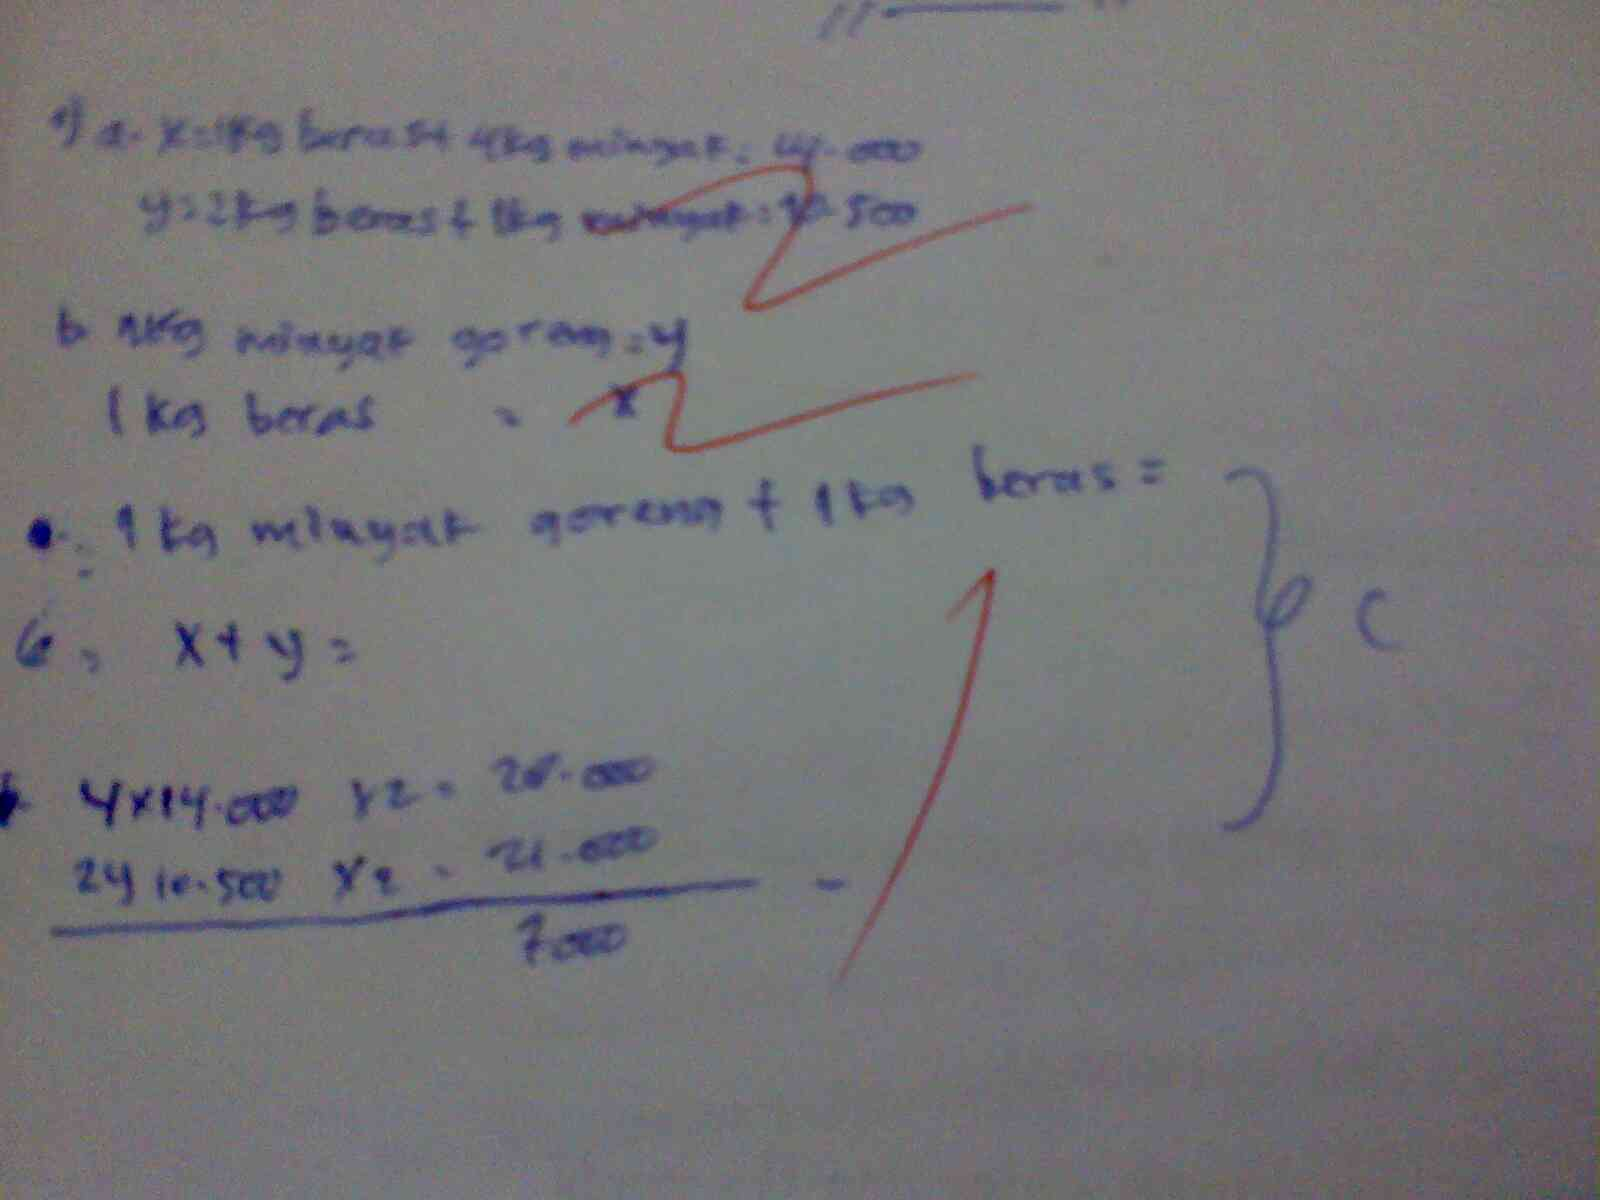 a. x = 1kg beras + 4kg minyak = 14.000
y = 2kg beras + 1kg minyak = 10.500
b 1kg minyak goreng = y
1 kg beras = x
1 kg minyak goreng + 1 kg beras =
x + y =
C
4x14.000 x2 = 28.000
2y 10.500 x2 = 21.000 -
7.000